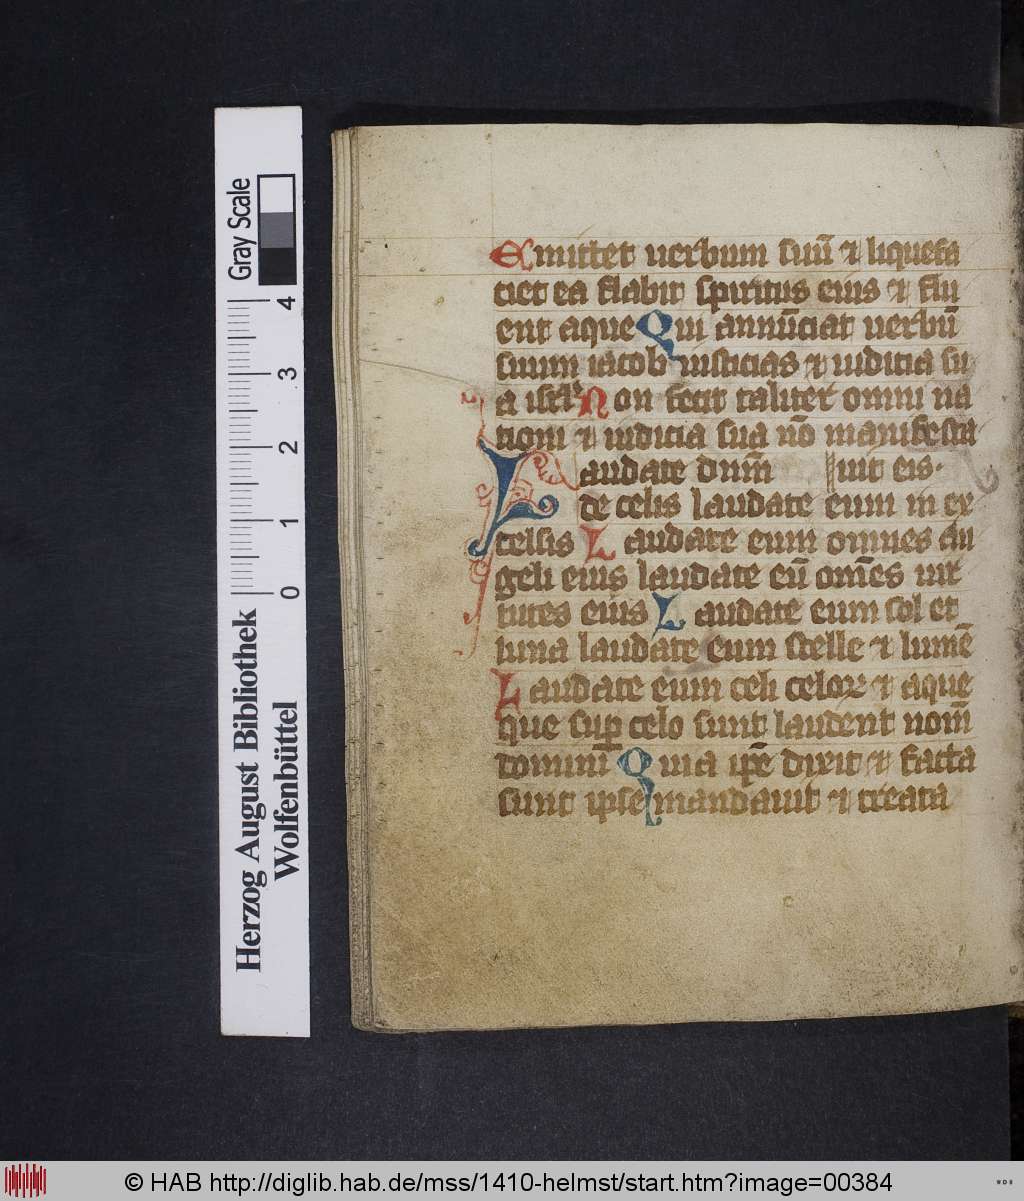 Gray Scale
4
3
2
1
0
Herzog August Bibliothek
Wolfenbüttel
Emittet uerbum suū ⁊ liquefa
ciet ea flabit spiritus eius ⁊ flu
ent aque Qui annūciat uerbū
suum iacob iusticias ⁊ iudicia su
a isrl' Non fecit taliter omni na
tioni ⁊ iudicia sua nō manifesta
Laudate dnm̄ uit eis·
de celis laudate eum in ex
celsis Laudate eum omnes an
geli eius laudate eū om̄es uir
tutes eius Laudate eum sol et
luna laudate eum stelle ⁊ lumē
Laudate eum celi celoꝝ ⁊ aque
que suꝑ celo sunt laudent nom̄
domini Quia ip̄e dixit ⁊ facta
sunt ipse mandauit ⁊ creata
© HAB http://diglib.hab.de/mss/1410-helmst/start.htm?image=00384